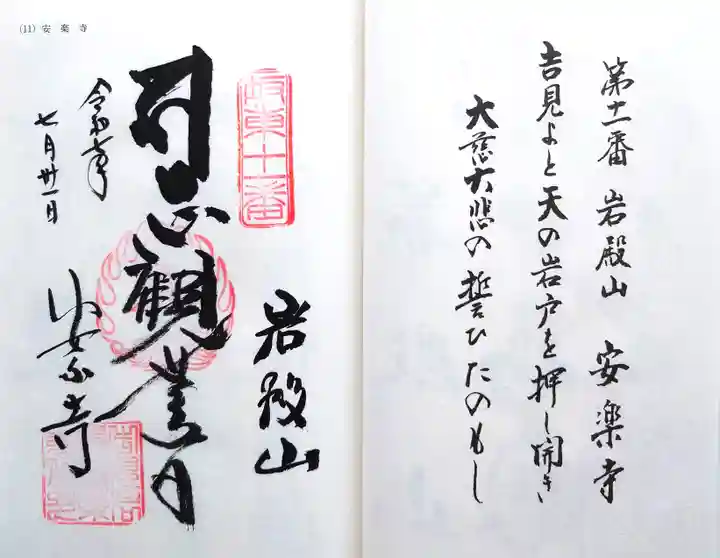 第十一番 岩殿山 安楽寺
吉見よと天の岩戸を押し開き
大慈大悲の誓ひたのもし
(11) 安楽寺
坂東十一番
岩殿山
聖観世音
安楽寺
令和
七月卅一日